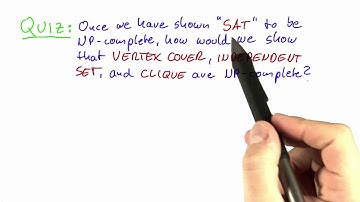 QUIZ: Once we have shown "SAT" to be
NP-complete, how would we show
that VERTEX COVER, INDEPENDENT
SET, and CLIQUE are NP-complete?